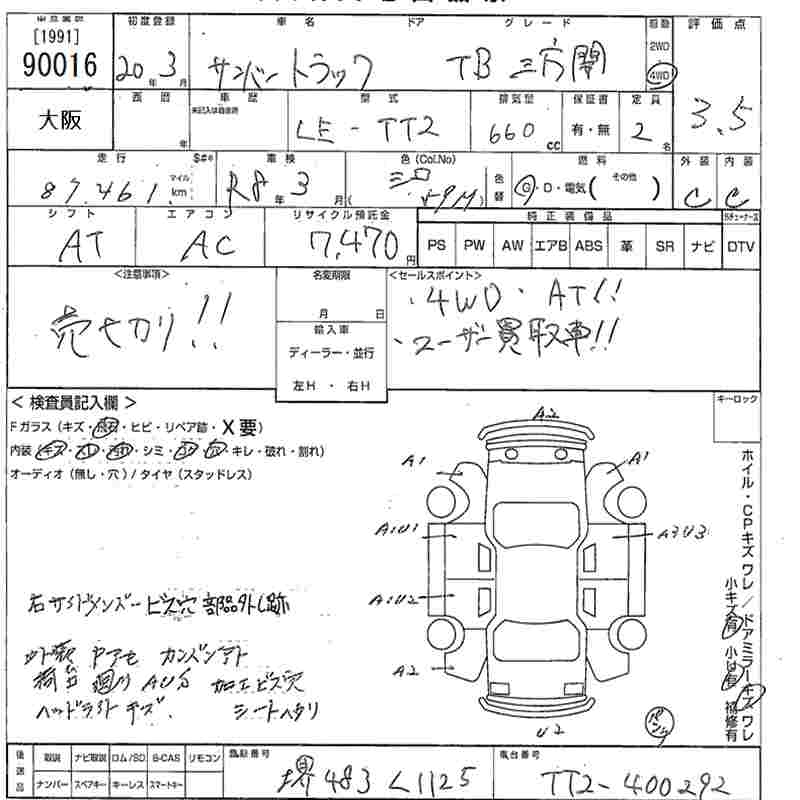 初度登録 車名 ドア グレード 駆動 評価点
[1991]
90016
20年 3月 サンバートラック TB 三方開 2WD 4WD 3.5
大阪
西暦 車歴 型式 排気量 保証書 定員
未記入は自家用
年 LE-TT2 660cc 有・無 2名
走行 $#* 車検 色(Col.No) 色替 燃料 その他 外装 内装
87,461 マイル km R8年 3月 シロ G・D・電気( ) C C
シフト エアコン リサイクル預託金 純正装備品
AT AC 7,470円 PS PW AW エアB ABS 革 SR ナビ DTV
<注意事項> 名変期限 <セールスポイント>
売切り!! 月 日
・4WD・AT!!
・ユーザー買取車!!
輸入車
ディーラー・並行
左H・右H
キーロック
<検査員記入欄>
Fガラス(キズ・飛石・ヒビ・リペア跡・X要)
内装(キズ・スレ・汚れ・シミ・コゲ・穴・キレ・破れ・割れ)
オーディオ(無し・穴)/タイヤ(スタッドレス)
A2
A1 A1
A1U1 A3U3
A1U2
A2
U2
ホイル・CPキズ ワレ/ドアミラーキズ ワレ
小キズ有 小凹有 補修有
右サイドメンバー ビス穴 部品外し跡
荷台廻り AUS 加工ビス穴
ヘッドライトキズ. シートヘタリ
パンク
後送品 取説 ナビ取説 ロム/SD B-CAS リモコン 登録番号 車台番号
ナンバー スペアキー キーレス スマートキー 堺483 く1125 TT2-400292